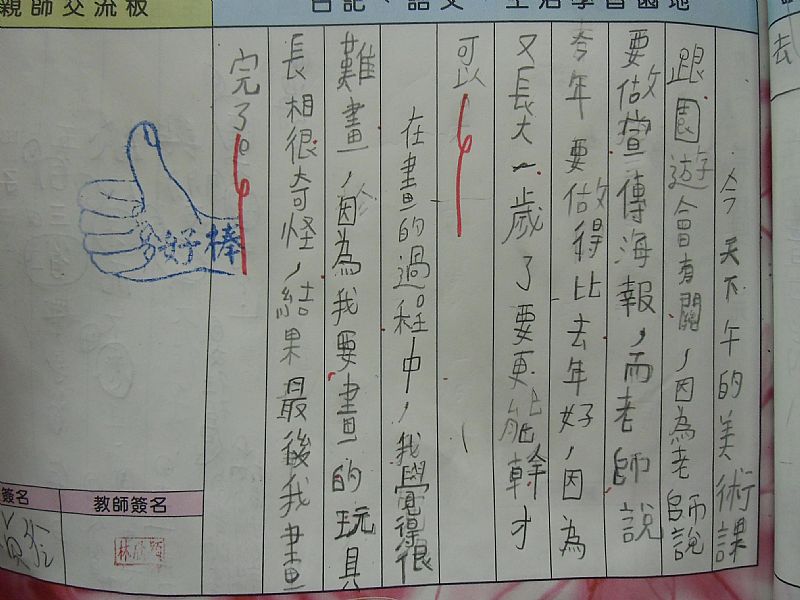 親師交流板
日記、語文、生活學習園地
今天下午的美術課
跟園遊會有關，因為老師說
要做宣傳海報，而老師說
今年要做得比去年好，因為
又長大一歲了要更能幹才
可以。
在畫的過程中，我覺得很
難畫，因為我要畫的玩具
長相很奇怪，結果最後我畫
完了。
好棒
簽名
教師簽名
去